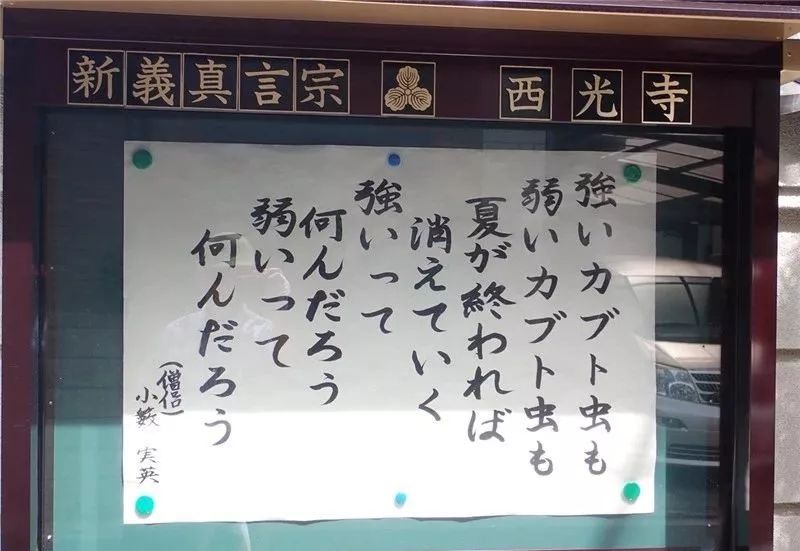 新義真言宗 西光寺
強いカブト虫も
弱いカブト虫も
夏が終われば
消えていく
強いって
何んだろう
弱いって
何んだろう
(僧侶)
小籔 実英